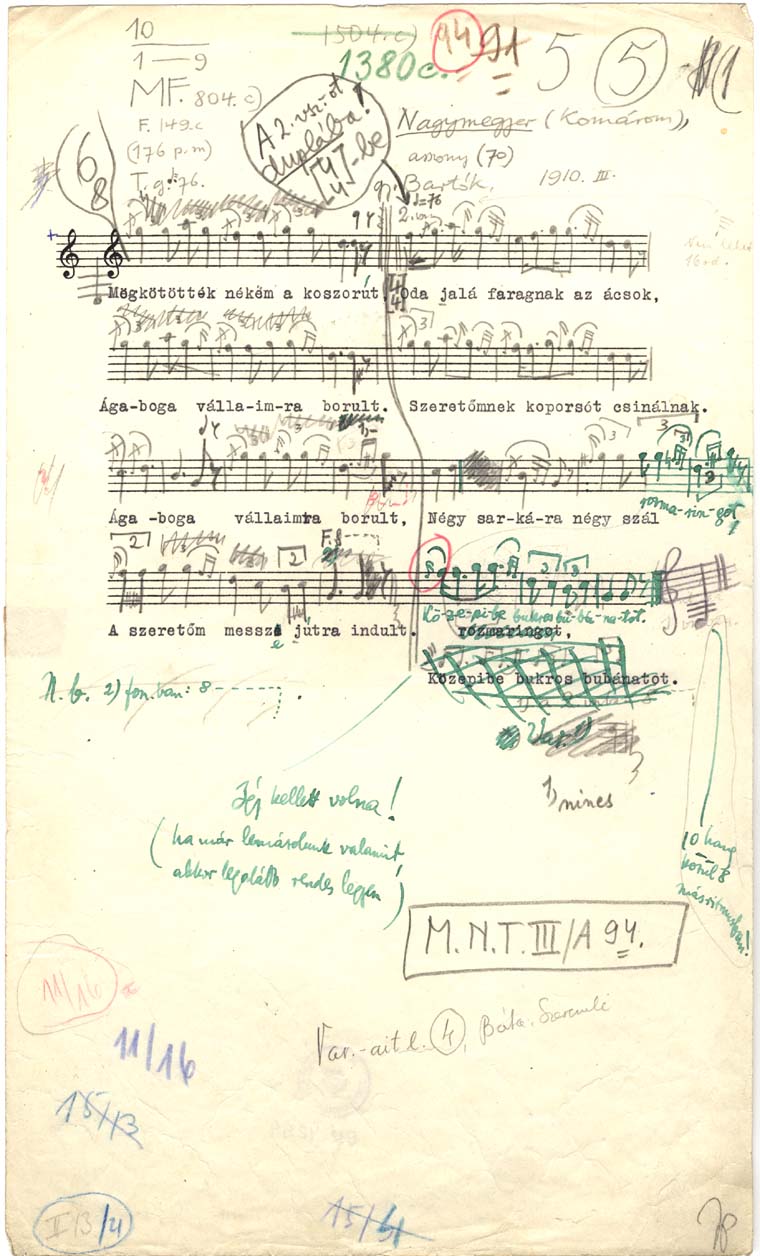 10
1—9
1504.c)
1380c.
94
91
5
5
MF. 804.c)
F. 149.c
(176 p.m)
T. g. 76.
6
8
A 2. vsz-ot
duplába!
4/4-be
Nagymegyer (Komárom),
asszony (70)
Bartók, 1910. III.
Megkötötték nékëm a koszorút, Oda jalá faragnak az ácsok,
Ága-boga válla-im-ra borult. Szeretőmnek koporsót csinálnak.
Ága -boga vállaimra borult, Négy sar-ká-ra négy szál
rozma-rin-got,
A szeretőm messzë jútra indult. rozmaringot,
Kö-ze-pi-be bukros bu-bá-na-tot.
Közepibe bukros bubánatot.
N.b. 2) fon.ban: 8
Var. 1)
1) nincs
Így kellett volna!
(ha már lemásolunk valamit,
akkor legalább rendes legyen!)
10 hang
közül 8
más ritmusban!
M.N.T. III/A 94.
11/16
Var.-ait l. 4, Báta. Szeremle
11/16
15/13
II/3/21
78